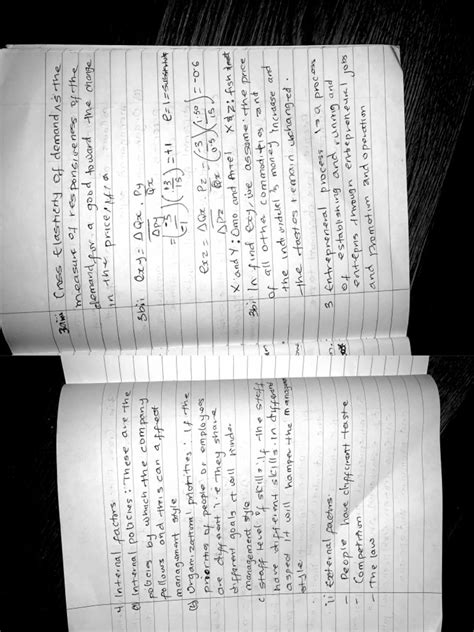 3aiii Cross Elasticity of demand is the
measure of responsiveness of the
demand for a good toward the change
in the price of a
3bii exy = ΔQx . Py
ΔPy Qx
exz = ΔQx . Pz
ΔPz Qx
X and Y : Omo and Ariel X & Z : fish
In find exy, we assume the price
of all other commodities and
the individual's money increase and
the tastes remain unchanged.
3 Entrepreneural process is a process
of establishing and running and
through entrepreneural jobs
and promotion and operation
4 Internal factors
a) Internal policies : These are the
policies by which the company
follows and this can affect
management style
(b) Organizational priorities : If the
priorities of people or employees
are different i.e They share
different goals it will hinder
management style
c staff level of skills : If the staff
have different skills in different
aspect it will hamper the
style.
ii External factors
- People have different taste
- Competition
- The law